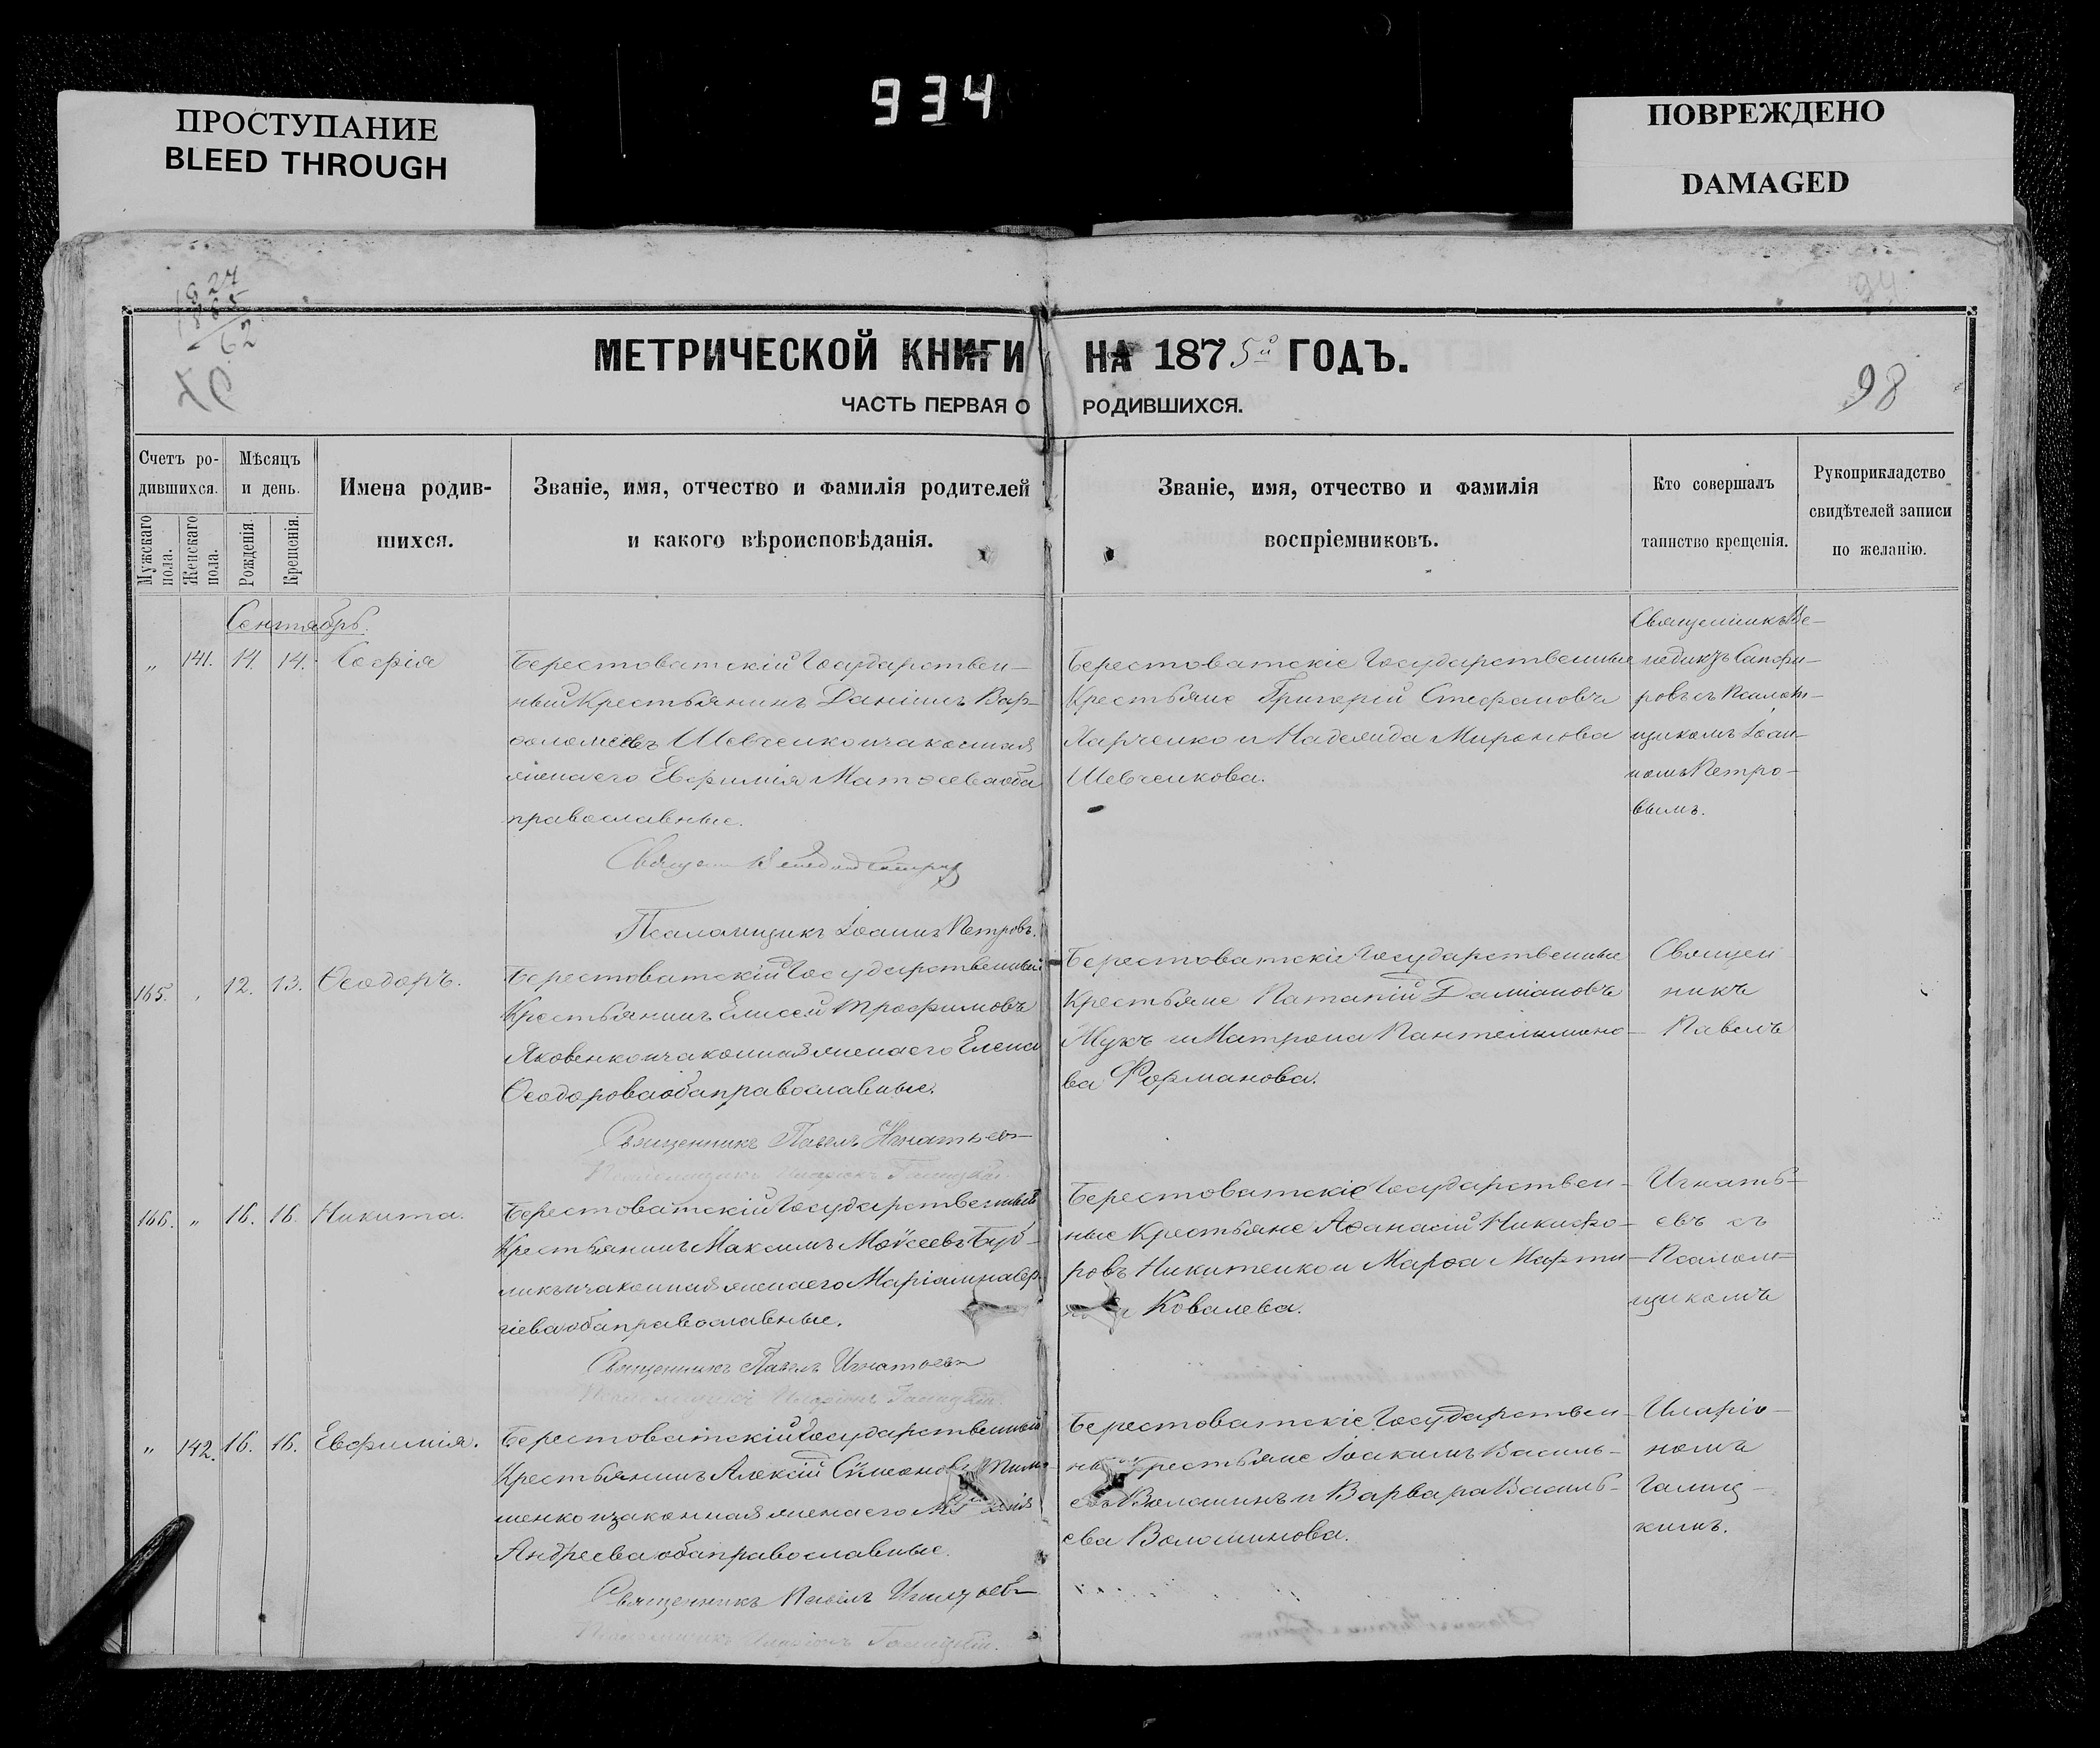 934
ПРОСТУПАНИЕ
BLEED THROUGH
ПОВРЕЖДЕНО
DAMAGED
94
МЕТРИЧЕСКОЙ КНИГИ НА 1875й ГОДЪ.
ЧАСТЬ ПЕРВАЯ О РОДИВШИХСЯ.
98
Счетъ ро-
дившихся.
Мужскаго
пола.
Женскаго
пола.
Мѣсяцъ
и день.
Рожденія.
Крещенія.
Имена родив-
шихся.
Званіе, имя, отчество и фамилія родителей
и какого вѣроисповѣданія.
Званіе, имя, отчество и фамилія
воспріемниковъ.
Кто совершалъ
таинство крещенія.
Рукоприкладство
свидѣтелей записи
по желанію.
Сентябрь.
" 141. 14. 14. Софія
Берестоватскій Государствен-
ный Крестьянинъ Даніилъ Вар-
ѳоломеевъ Шевченко и законная
жена его Евфимія Матѳеева оба
православные.
Псаломщикъ Іоаннъ Петровъ.
Берестоватскіе Государственные
Крестьяне Григорій Стефановъ
Харченко и Надежда Миронова
Шевченкова.
Священникъ Ве-
недиктъ Сапфи-
ровъ съ Псалом-
щикомъ Іоан-
номъ Петро-
вымъ.
165. " 12. 13. Ѳеодоръ.
Берестоватскій Государственный
Крестьянинъ Елисей Трофимовъ
Яковенко и законная жена его Елена
Ѳеодорова оба православные.
Священникъ Павелъ Игнатьевъ
Берестоватскіе Государственные
Крестьяне Патапій Даміановъ
Жукъ и Матрона Пантелимоно-
ва Форманова.
Священ
никъ
Павелъ
166. " 16. 16. Никита.
Берестоватскій Государственный
Крестьянинъ Максимъ Моѵсеевъ Буб-
ликъ и законная жена его Маріамна Сер-
гіева оба православные.
Священникъ Павелъ Игнатьевъ
Берестоватскіе Государствен-
ные Крестьяне Аѳанасій Никифо-
ровъ Никитенко и Марѳа Марти-
Ковалева.
Игнать-
евъ съ
Псалом-
щикомъ
" 142. 16. 16. Евфимія.
Берестоватскій Государственный
Крестьянинъ Алексій Сѵмеоновъ
менко и законная жена его
Андреева оба православные.
Священникъ Павелъ Игнатьевъ
Псаломщикъ Иларіонъ Галицкій.
Берестоватскіе Государствен-
Крестьяне Іоакимъ Василь-
евъ Волошинъ и Варвара Василь-
ева Волошинова.
Иларіо-
номъ
Галиц-
кимъ.